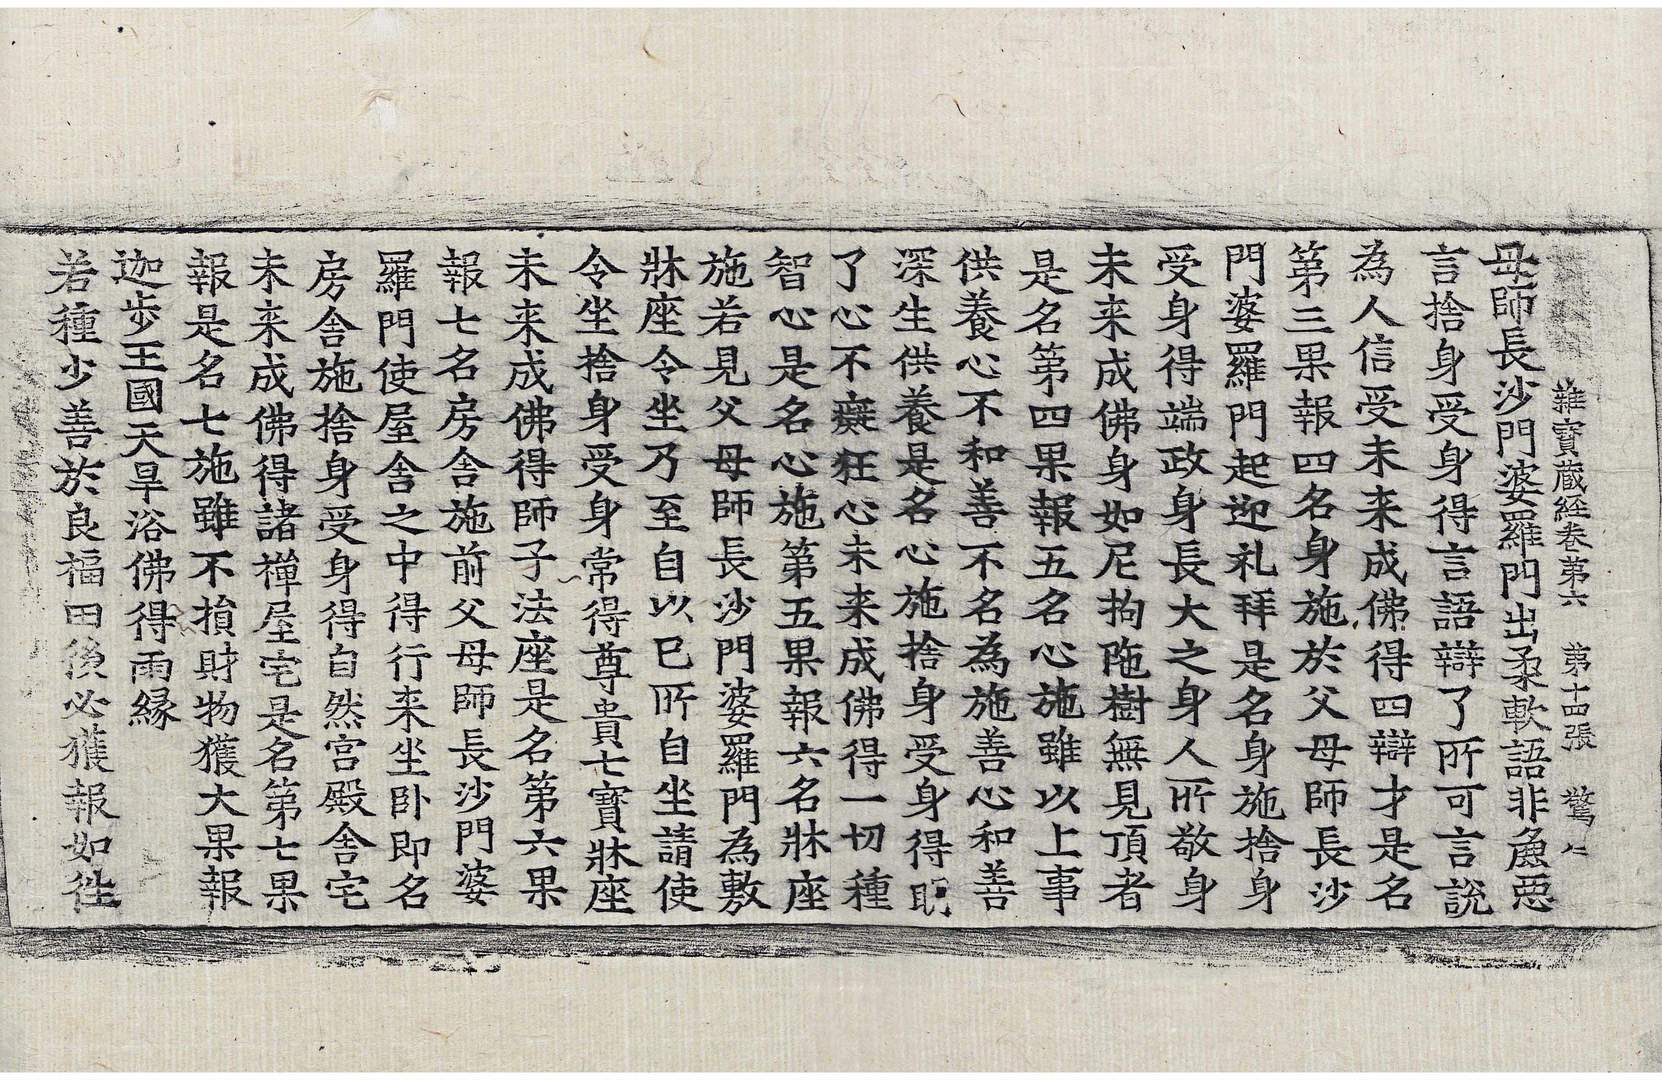 雜寶藏經卷第六　第十四張　驚
母師長沙門婆羅門出柔軟語非麁惡
言捨身受身得言語辯了所可言說
為人信受未来成佛得四辯才是名
第三果報四名身施於父母師長沙
門婆羅門起迎礼拜是名身施捨身
受身得端政身長大之身人所敬身
未来成佛身如尼拘陁樹無見頂者
是名第四果報五名心施雖以上事
供養心不和善不名為施善心和善
深生供養是名心施捨身受身得明
了心不癡狂心未来成佛得一切種
智心是名心施第五果報六名牀座
施若見父母師長沙門婆羅門為敷
牀座令坐乃至自以已所自坐請使
令坐捨身受身常得尊貴七寶牀座
未来成佛得師子法座是名第六果
報七名房舍施前父母師長沙門婆
羅門使屋舍之中得行来坐卧即名
房舍施捨身受身得自然宮殿舍宅
未来成佛得諸禪屋宅是名第七果
報是名七施雖不損財物獲大果報
迦步王國天旱浴佛得雨緣
若種少善於良福田後必獲報如往